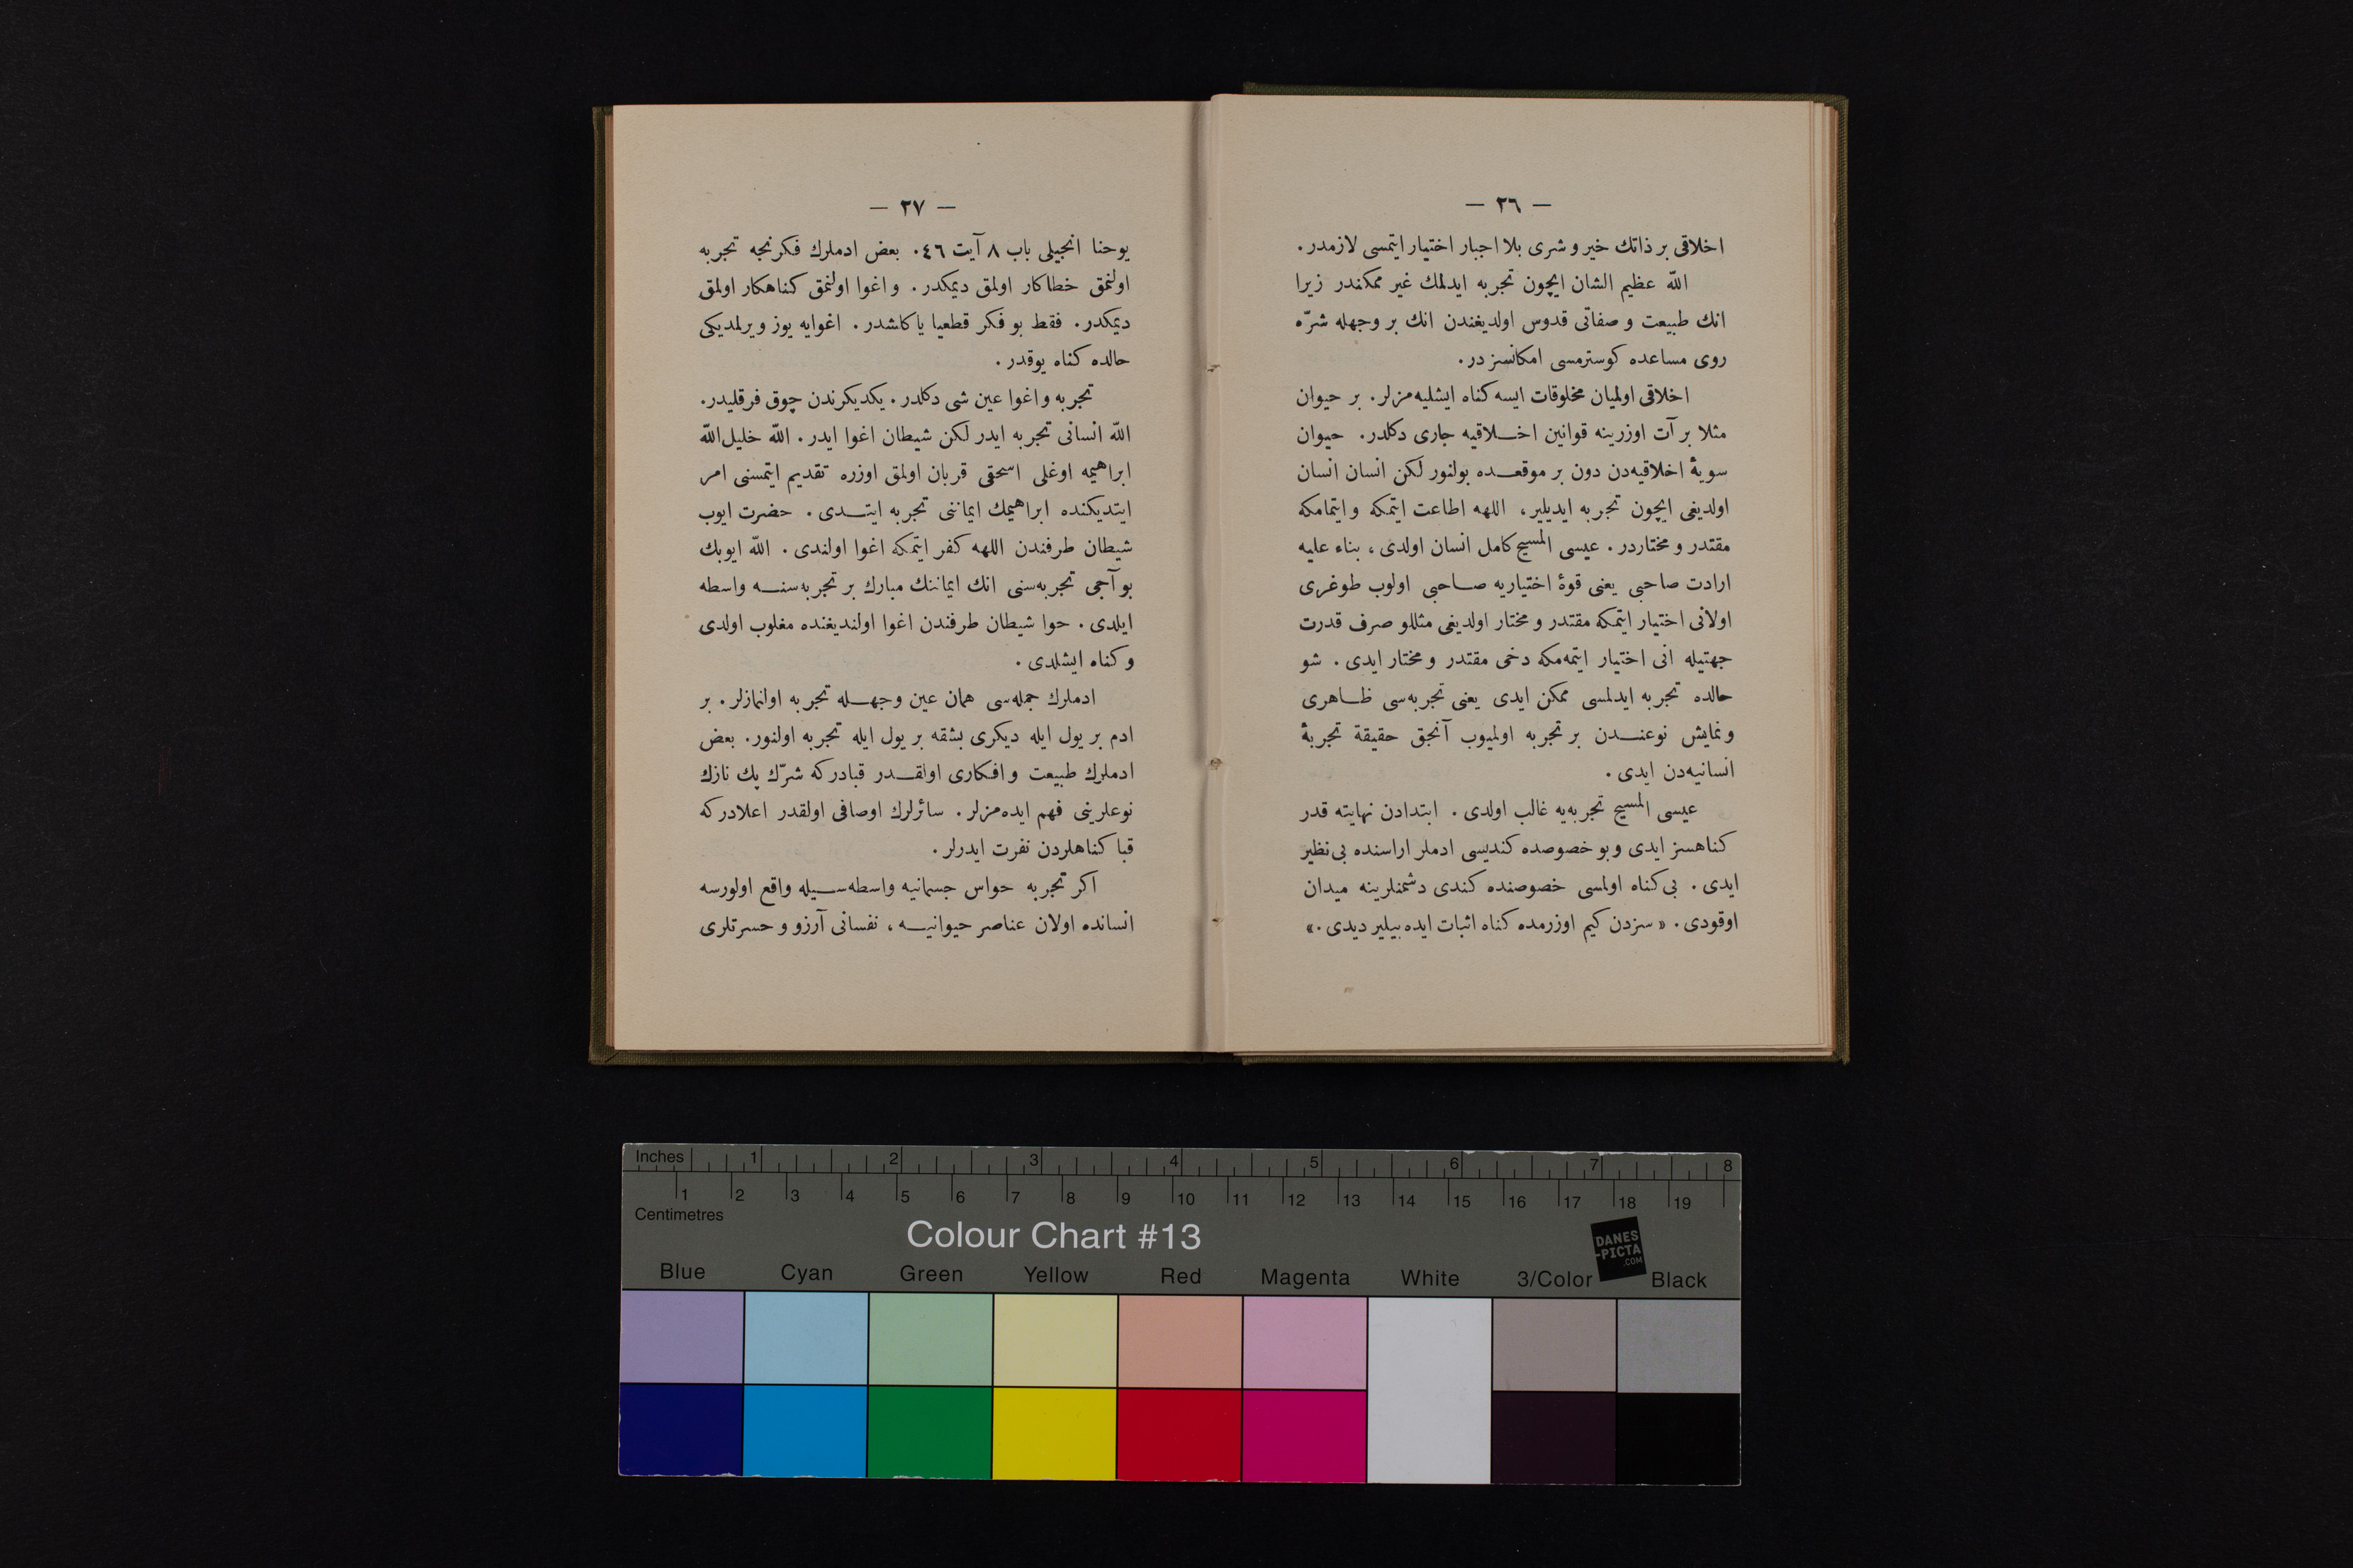 — ٢٦ —
اخلاقی بر ذاتك خير و شری بلا اجبار اختيار ايتمسی لازمدر.
الله عظيم الشان ايچون تجربه ايدلمك غير ممكندر زيرا
انك طبيعت و صفاتی قدوس اولديغندن انك بر وجهله شرّه
روی مساعده كوسترمسی امكانسز در.
اخلاقی اولميان مخلوقات ايسه كناه ايشليه‌مزلر. بر حيوان
مثلا بر آت اوزرينه قوانين اخلاقيه جاری دكلدر. حيوان
سويهٔ اخلاقيه‌دن دون بر موقعده بولنور لكن انسان انسان
اولديغی ايچون تجربه ايديلير، اللهه اطاعت ايتمكه و ايتمامكه
مقتدر و مختاردر. عيسی المسيح كامل انسان اولدی، بناء عليه
ارادت صاحبی يعنی قوهٔ اختياريه صاحبی اولوب طوغری
اولانی اختيار ايتمكه مقتدر و مختار اولديغی مثللو صرف قدرت
جهتيله انی اختيار ايتمه‌مكه دخی مقتدر و مختار ايدی. شو
حالده تجربه ايدلمسی ممكن ايدی يعنی تجربه‌سی ظاهری
و نمايش نوعندن بر تجربه اولميوب آنجق حقيقة تجربهٔ
انسانيه‌دن ايدی.
عيسی المسيح تجربه‌يه غالب اولدی. ابتدادن نهايته قدر
كناهسز ايدی و بو خصوصده كنديسی ادملر اراسنده بی نظير
ايدی. بی كناه اولمسی خصوصنده كندی دشمنلرينه ميدان
اوقودی. «سزدن كيم اوزرمده كناه اثبات ايده بيلير ديدی.»
— ٢٧ —
يوحنا انجيلی باب ٨ آيت ٤٦. بعض ادملرك فكرنجه تجربه
اولنمق خطاكار اولمق ديمكدر. و اغوا اولنمق كناهكار اولمق
ديمكدر. فقط بو فكر قطعيا ياكلشدر. اغوايه يوز ويرلمديكی
حالده كناه يوقدر.
تجربه و اغوا عين شی دكلدر. يكديكرندن چوق فرقليدر.
الله انسانی تجربه ايدر لكن شيطان اغوا ايدر. الله خليل‌الله
ابراهيمه اوغلی اسحقی قربان اولمق اوزره تقديم ايتمسنی امر
ايتديكنده ابراهيمك ايماننی تجربه ايتدی. حضرت ايوب
شيطان طرفندن اللهه كفر ايتمكه اغوا اولندی. الله ايوبك
بو آجی تجربه‌سنی انك ايماننك مبارك بر تجربه‌سنه واسطه
ايلدی. حوا شيطان طرفندن اغوا اولنديغنده مغلوب اولدی
و كناه ايشلدی.
ادملرك جمله‌سی همان عين وجهله تجربه اولنمازلر. بر
ادم بر يول ايله ديكری بشقه بر يول ايله تجربه اولنور. بعض
ادملرك طبيعت و افكاری اولقدر قبادركه شرّك پك نازك
نوعلرينی فهم ايده‌مزلر. سائرلرك اوصافی اولقدر اعلادركه
قبا كناهلردن نفرت ايدرلر.
اكر تجربه حواس جسمانيه واسطه‌سيله واقع اولورسه
انسانده اولان عناصر حيوانيه، نفسانی آرزو و حسرتلری
Inches 1 2 3 4 5 6 7 8
1 2 3 4 5 6 7 8 9 10 11 12 13 14 15 16 17 18 19
Centimetres
Colour Chart #13
DANES
-PICTA
.COM
Blue Cyan Green Yellow Red Magenta White 3/Color Black